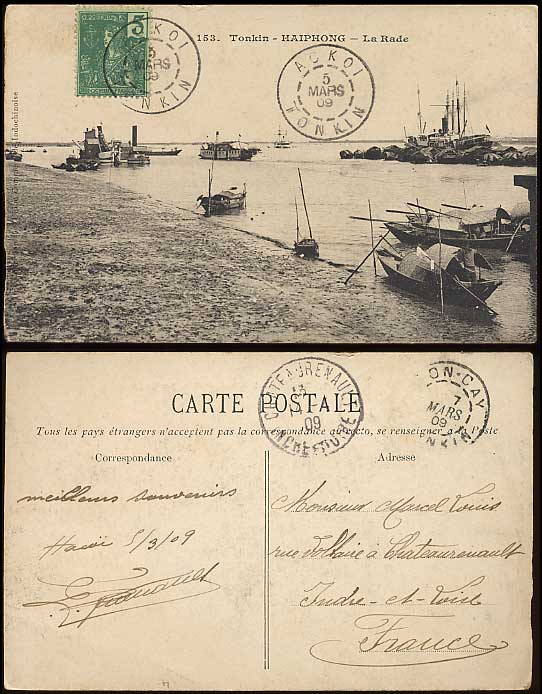 5
ACKOI
5
MARS
09
TONKIN
153. Tonkin - HAIPHONG - La Rade
ACKOI
5
MARS
09
TONKIN
Indochinoise
CHATEAURENAULT
13
09
INDRE-ET-LOIRE
ON-CAY
7
MARS
09
TONKIN
CARTE POSTALE
Tous les pays étrangers n'acceptent pas la correspondance au recto, se renseigner à la Poste
Correspondance
Adresse
meilleurs souvenirs
Hacoi 5/3/09
Monsieur Marcel Louis
rue Voltaire à Chateaurenault
Indre-et-Loire
France